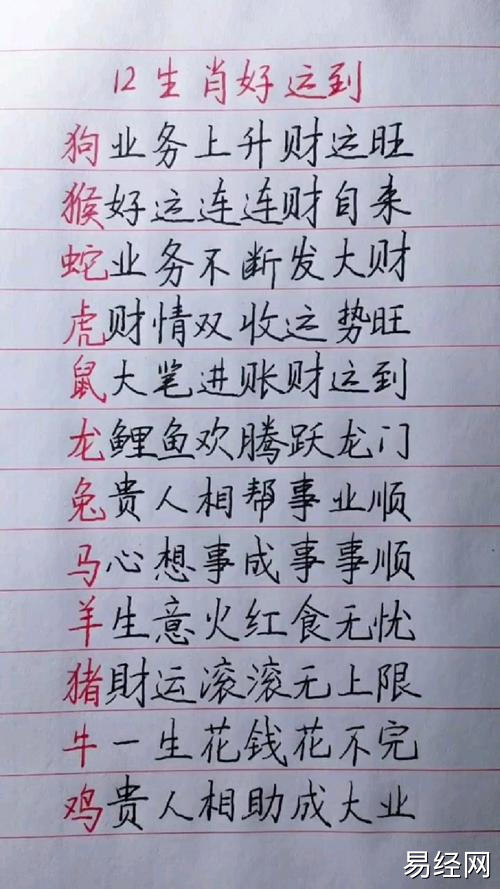 12生肖好运到
狗业务上升财运旺
猴好运连连财自来
蛇业务不断发大财
虎财情双收运势旺
鼠大笔进账财运到
龙鲤鱼欢腾跃龙门
兔贵人相帮事业顺
马心想事成事事顺
羊生意火红食无忧
猪財运滚滚无上限
牛一生花钱花不完
鸡贵人相助成大业
易经网